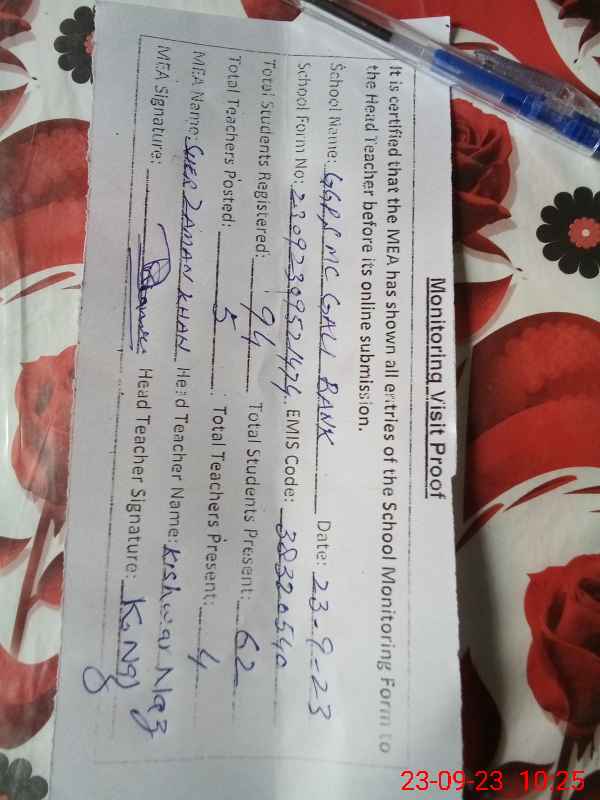 Monitoring Visit Proof
It is certified that the MEA has shown all entries of the School Monitoring Form to
the Head Teacher before its online submission.
School Name: GGPS MC GALI BANK Date: 23-9-23
School Form No: 23092309521474 EMIS Code: 38320540
Total Students Registered: 94 Total Students Present: 62
Total Teachers Posted: 5 Total Teachers Present: 4
MEA Name: SHER ZAMAN KHAN Head Teacher Name: Kishwar Naz
MEA Signature: Head Teacher Signature: K. Naz
23-09-23 10:25